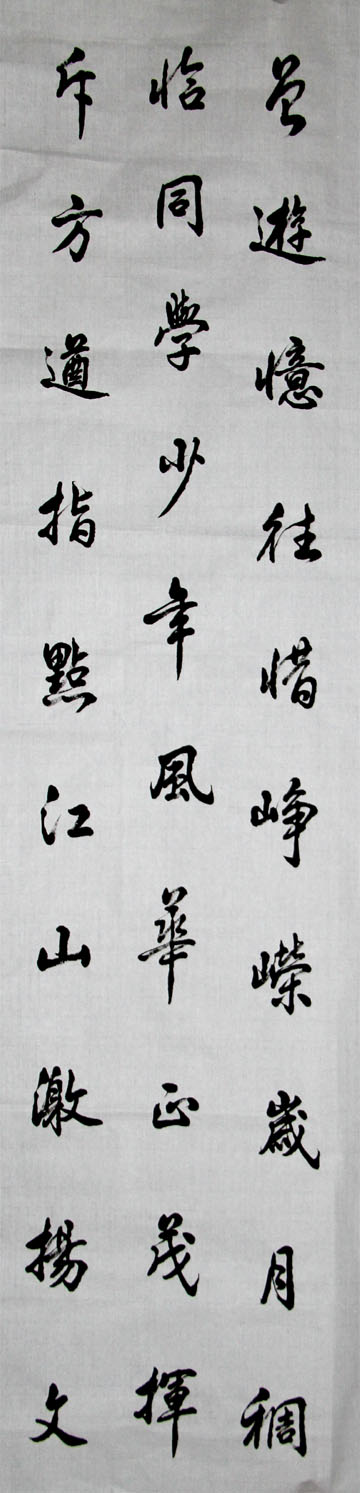 曾遊憶往惜崢嶸歲月稠
恰同學少年風華正茂揮
斥方遒指點江山激揚文